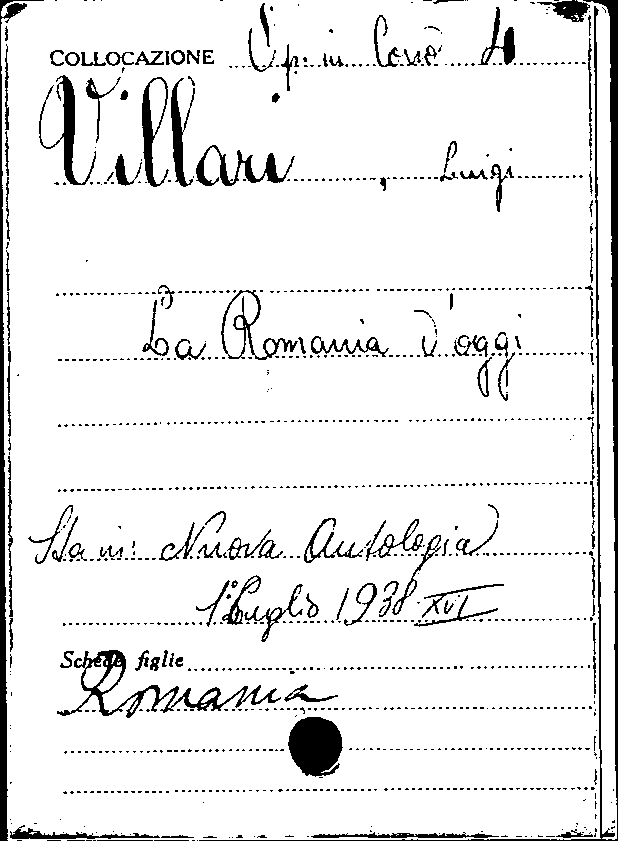 COLLOCAZIONE Op. in Corso 4
Villari, Luigi
La Romania d'oggi
Sta in: Nuova Antologia
1° Luglio 1938 XVI
Schede figlie
Romania